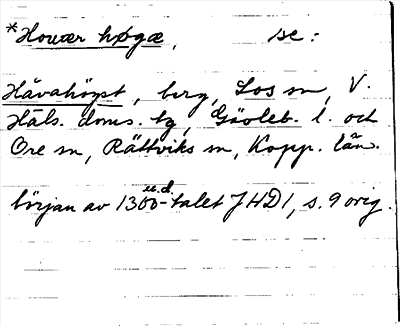 *Houær høgæ, se:
Håvahögst, berg, Los sn, V.
Häls. doms. tg, Gävleb. l. och
Ore sn, Rättviks sn, Kopp. län.
u.d.
början av 1300-talet JHD 1, s. 9 orig.